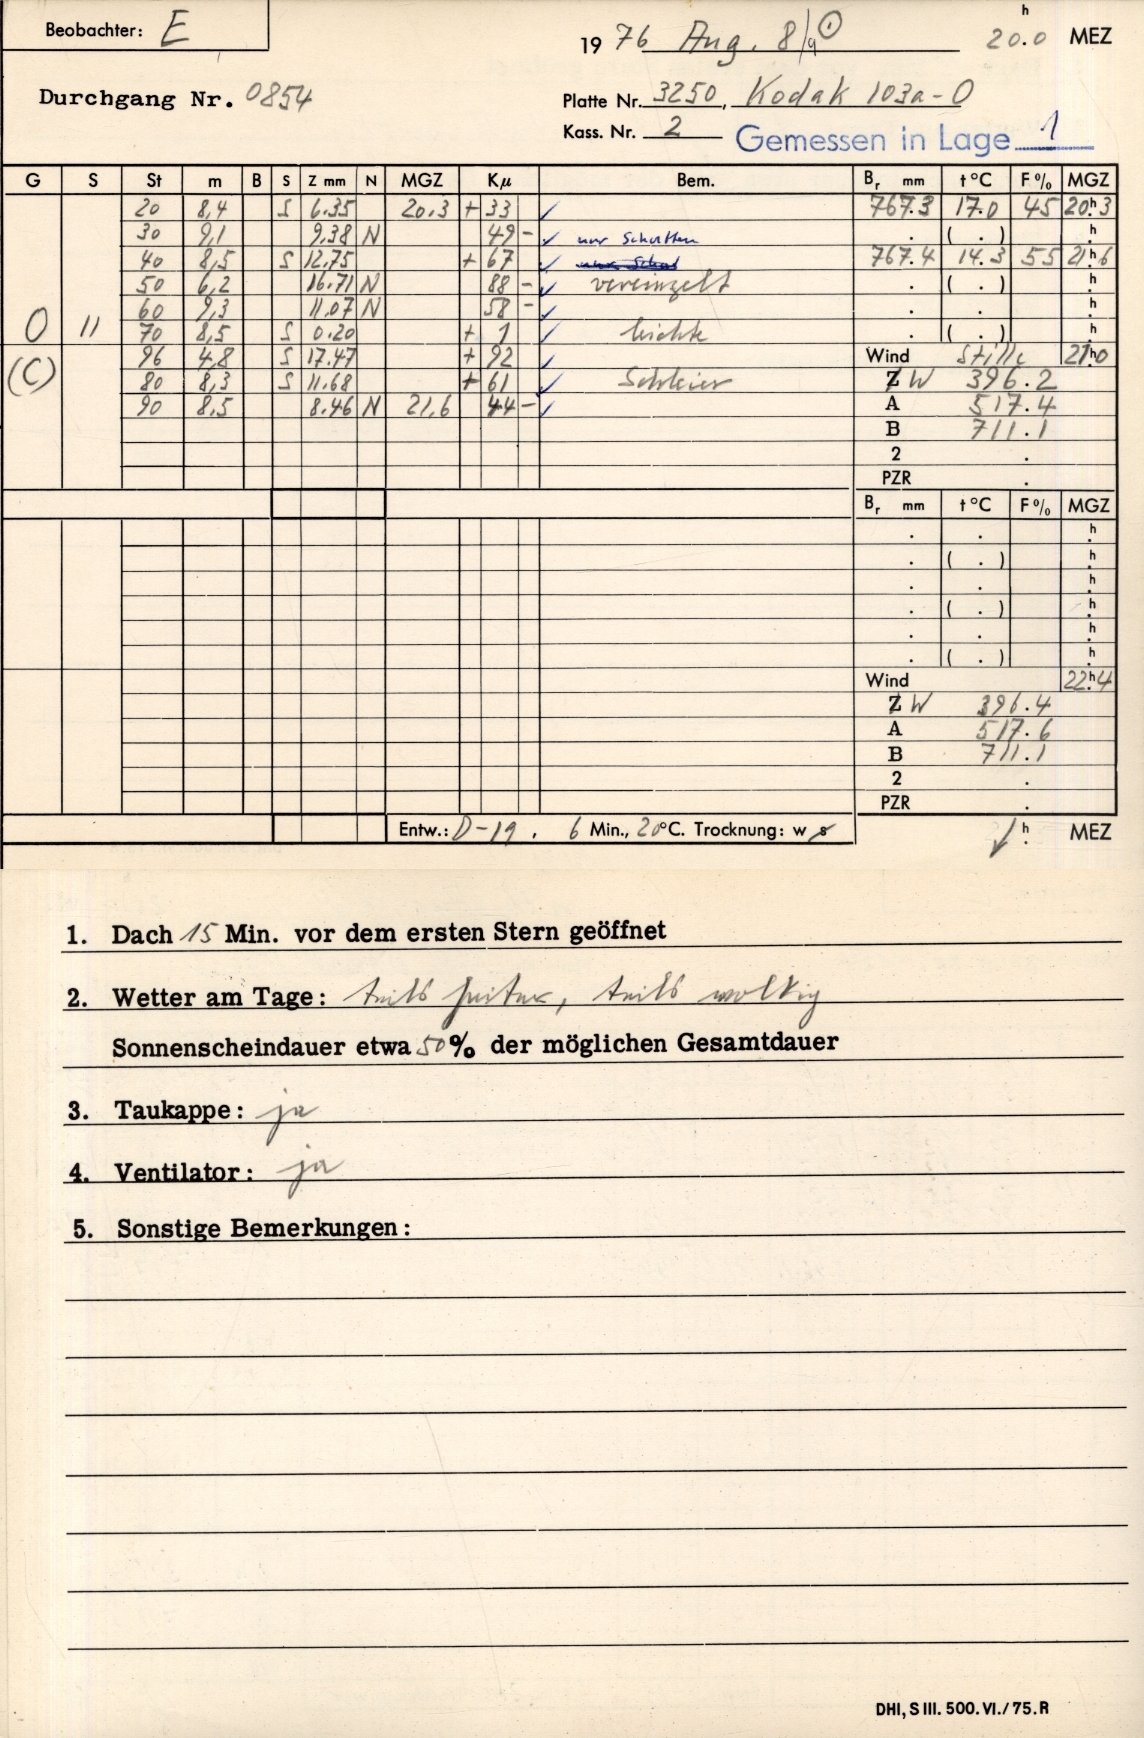 Beobachter: E
1976 Aug. 8/9 ☉ 20.0 h MEZ
Durchgang Nr. 0854
Platte Nr. 3250, Kodak 103a-O
Kass. Nr. 2 Gemessen in Lage 1
G S St m B S Z mm N MGZ Kμ Bem. Br mm t °C F % MGZ
20 8,4 S 6.35 20.3 + 33 ✓ 767.3 17.0 45 20h.3
30 9,1 9.38 N 49 - ✓ nur Schatten . ( . ) h.
40 8,5 S 12.75 + 67 ✓ 767.4 14.3 55 21h.6
50 6,2 16.71 N 88 - ✓ vereinzelt . ( . ) h.
60 9,3 11.07 N 58 - ✓ . . h.
O II 70 8,5 S 0.20 + 1 ✓ leichte . ( . ) h.
(C) 96 4,8 S 17.47 + 92 ✓ Wind Stille 21h.0
80 8,3 S 11.68 + 61 ✓ Schleier Z W 396.2
90 8,5 8.46 N 21,6 44 - ✓ A 517.4
B 711.1
2 .
PZR .
Br mm t °C F % MGZ
. . h.
. ( . ) h.
. . h.
. ( . ) h.
. . h.
. ( . ) h.
Wind 22h.4
Z W 396.4
A 517.6
B 711.1
2 .
PZR .
Entw.: D-19, 6 Min., 20°C. Trocknung: w s ✓ h. MEZ
1. Dach 15 Min. vor dem ersten Stern geöffnet
2. Wetter am Tage: teils heiter, teils wolkig
Sonnenscheindauer etwa 50% der möglichen Gesamtdauer
3. Taukappe: ja
4. Ventilator: ja
5. Sonstige Bemerkungen:
DHI, S III. 500. VI./75. R